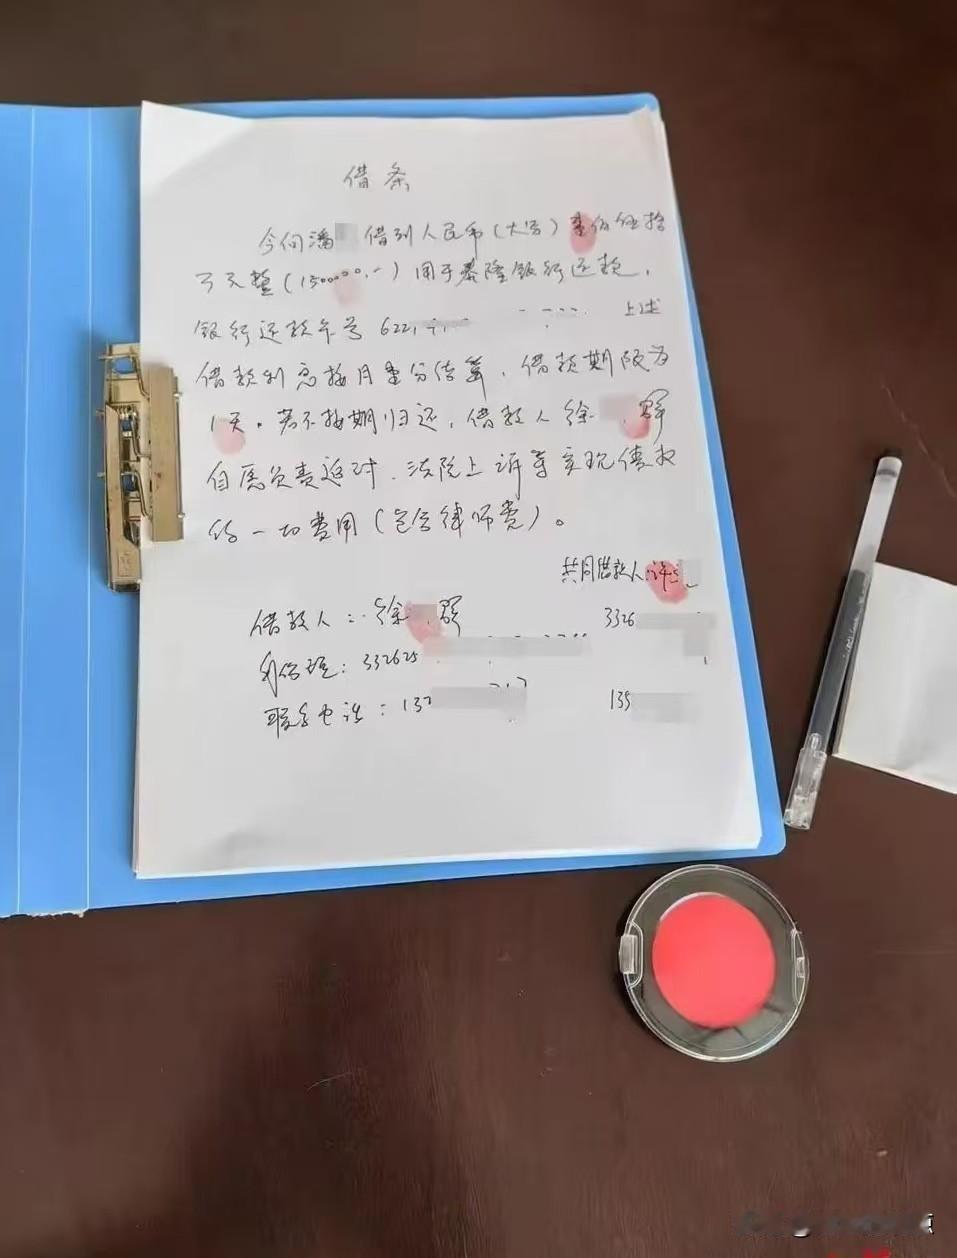 借条
今向潘 借到人民币(大写)壹佰伍拾
万元整(1500000.-)用于泰隆银行还款,
银行还款卡号622 上述
借款利息按月壹分结算,借款期限为
1天。若不按期归还,借款人徐
自愿负责返还,法院上诉等实现债权
的一切费用(包含律师费)。
共同借款人:许
借款人:徐
3326
身份证:332625
联系电话:137
135